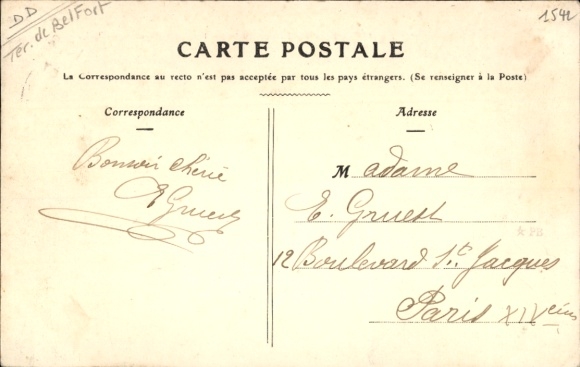 DD
Ter. de Belfort
1542
CARTE POSTALE
La Correspondance au recto n'est pas acceptée par tous les pays étrangers. (Se renseigner à la Poste)
Correspondance
Adresse
Bonsoir chérie
E Gruest
Madame
E. Gruest
12 Boulevard St. Jacques
Paris XIVème